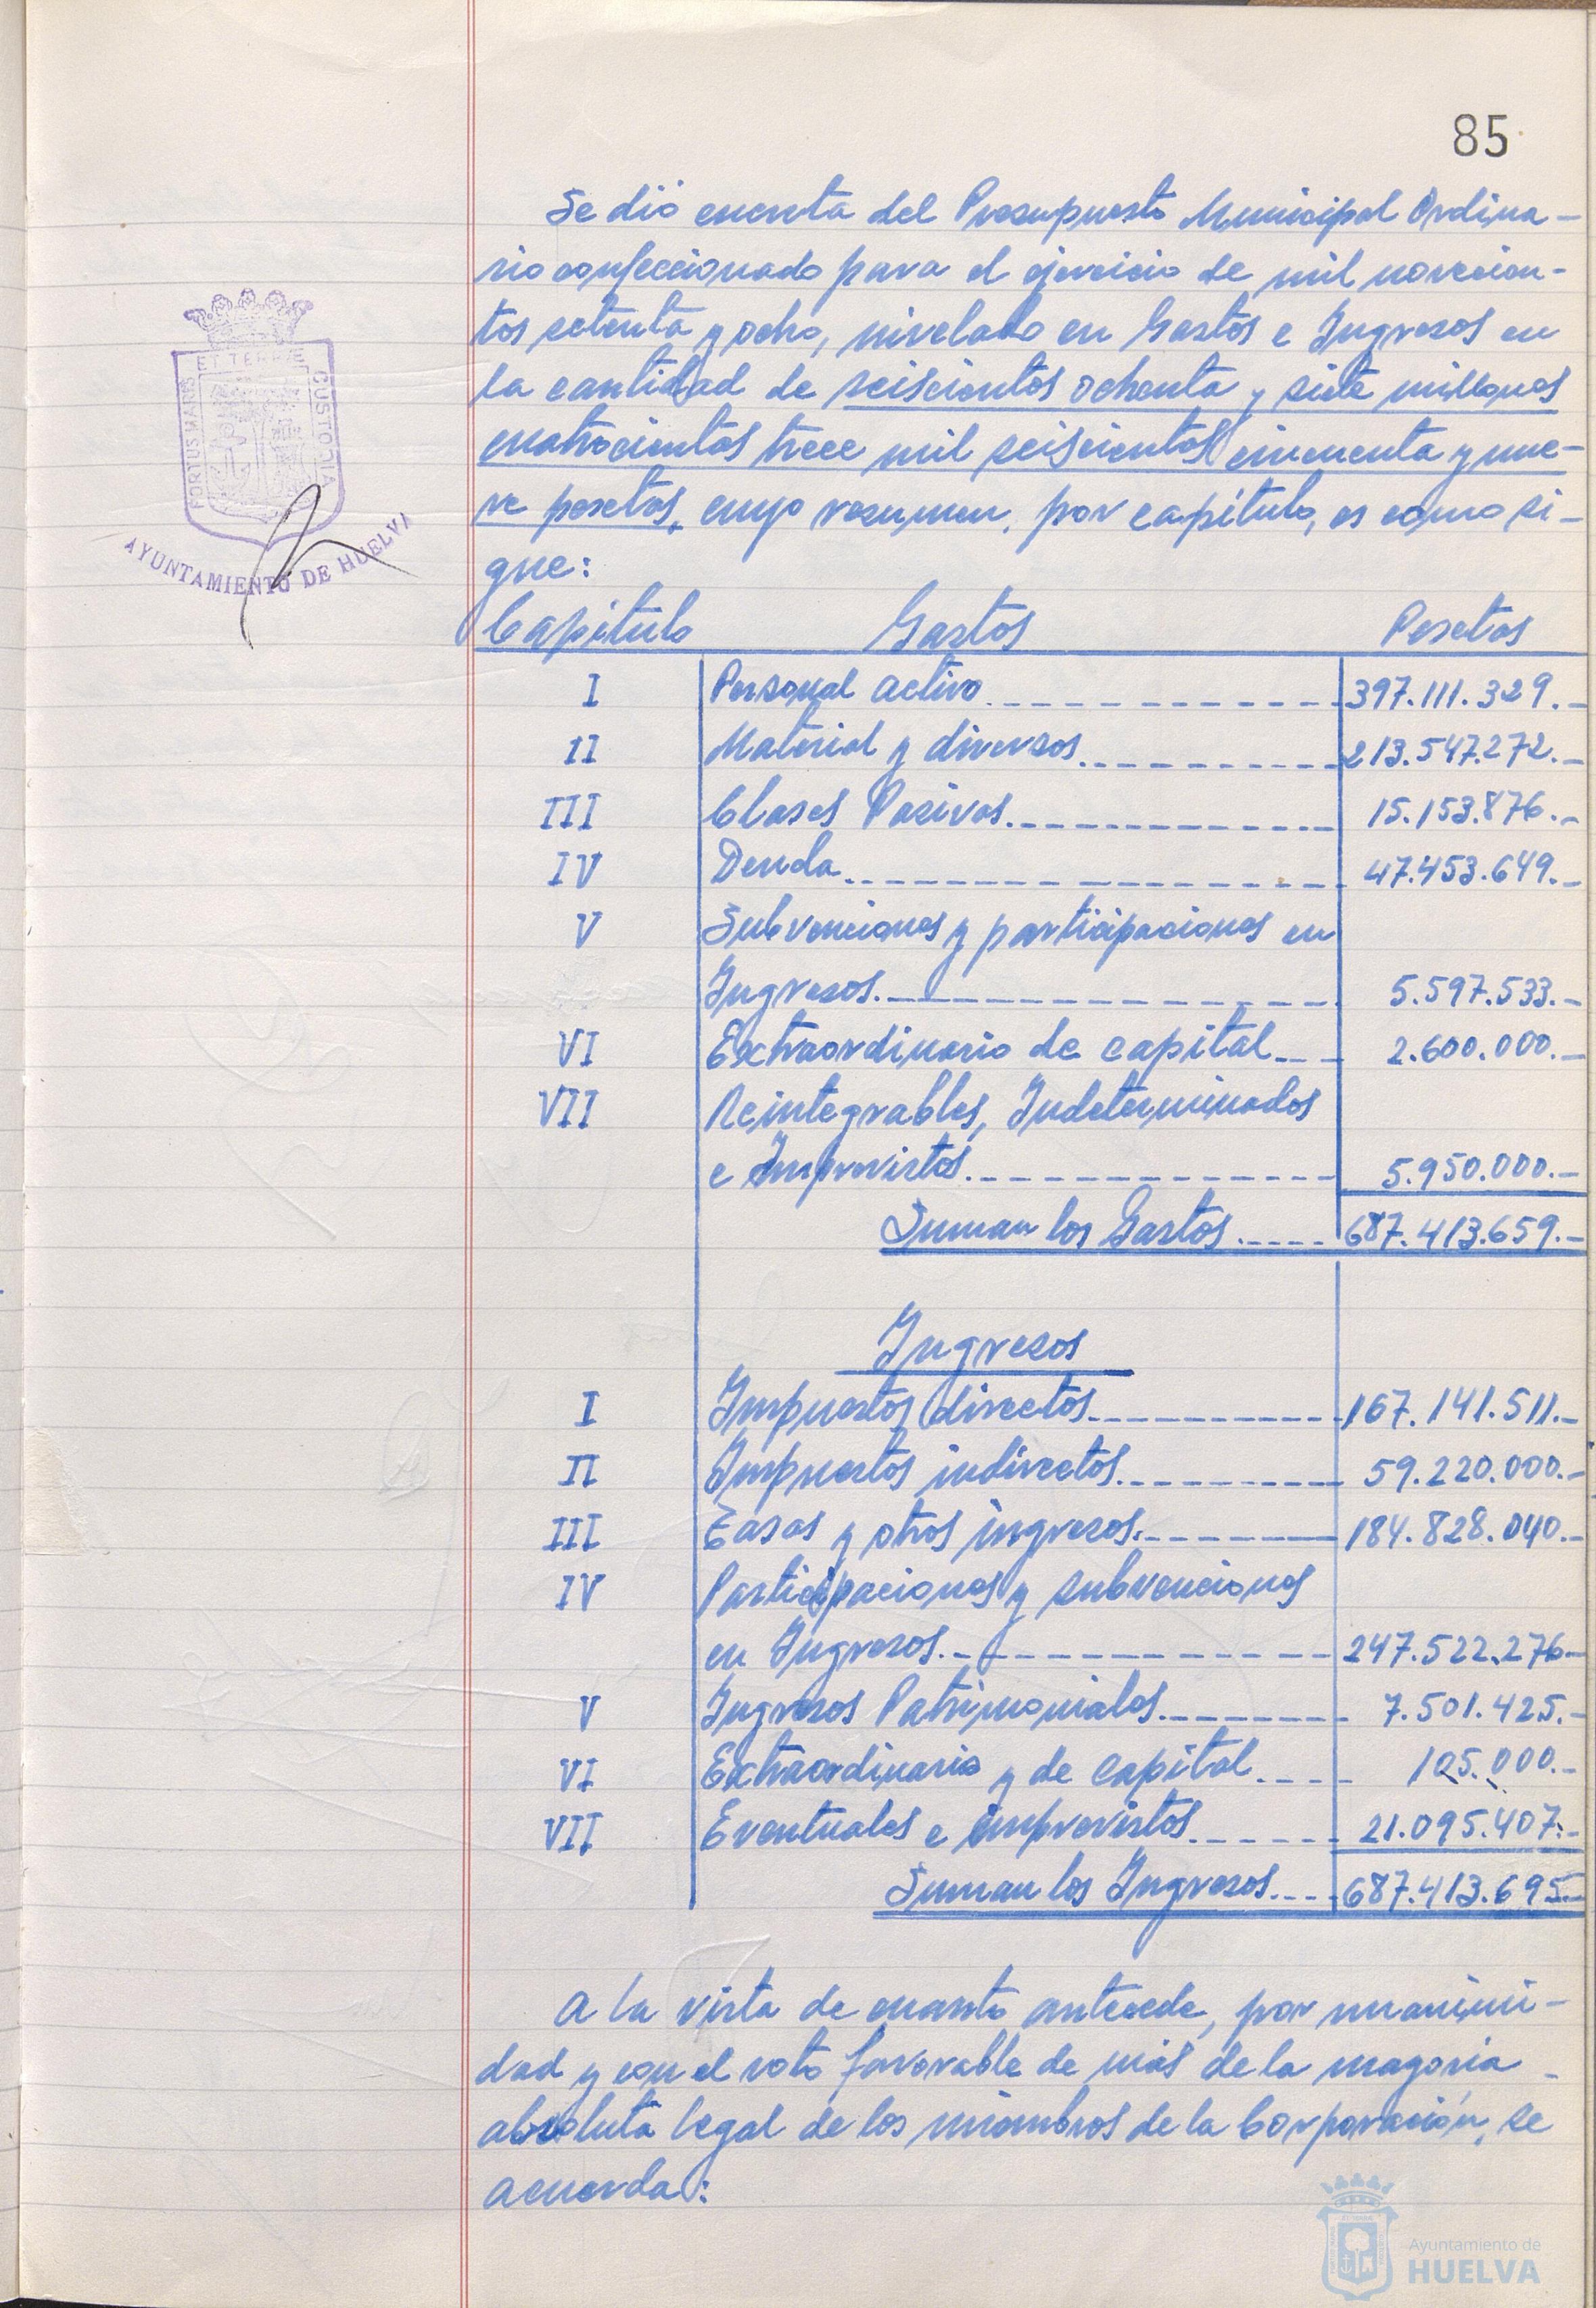 85
Se dió cuenta del Presupuesto Municipal Ordina-
rio confeccionado para el ejercicio de mil novecien-
tos setenta y ocho, nivelado en Gastos e Ingresos en
la cantidad de seiscientos ochenta y siete millones
cuatrocientos trece mil seiscientos cincuenta y nue-
ve pesetas, cuyo resumen, por capítulo, es como si-
gue:
ET TERRAE
PORTUS MARIS
CUSTODIA
AYUNTAMIENTO DE HUELVA
Capítulo Gastos Pesetas
I Personal activo 397.111.329.-
II Material y diversos 213.547.272.-
III Clases Pasivas 15.153.876.-
IV Deuda 47.453.649.-
V Subvenciones y participaciones en
Ingresos 5.597.533.-
VI Extraordinario de capital 2.600.000.-
VII Reintegrables, Indeterminados
e Imprevistos 5.950.000.-
Suman los Gastos 687.413.659.-
Ingresos
I Impuestos directos 167.141.511.-
II Impuestos indirectos 59.220.000.-
III Tasas y otros ingresos 184.828.040.-
IV Participaciones y subvenciones
en Ingresos 247.522.276.-
V Ingresos Patrimoniales 7.501.425.-
VI Extraordinario y de capital 105.000.-
VII Eventuales e imprevistos 21.095.407.-
Suman los Ingresos 687.413.695.-
A la vista de cuanto antecede, por unanimi-
dad y con el voto favorable de más de la mayoría
absoluta legal de los miembros de la Corporación, se
acuerda:
Ayuntamiento de
HUELVA